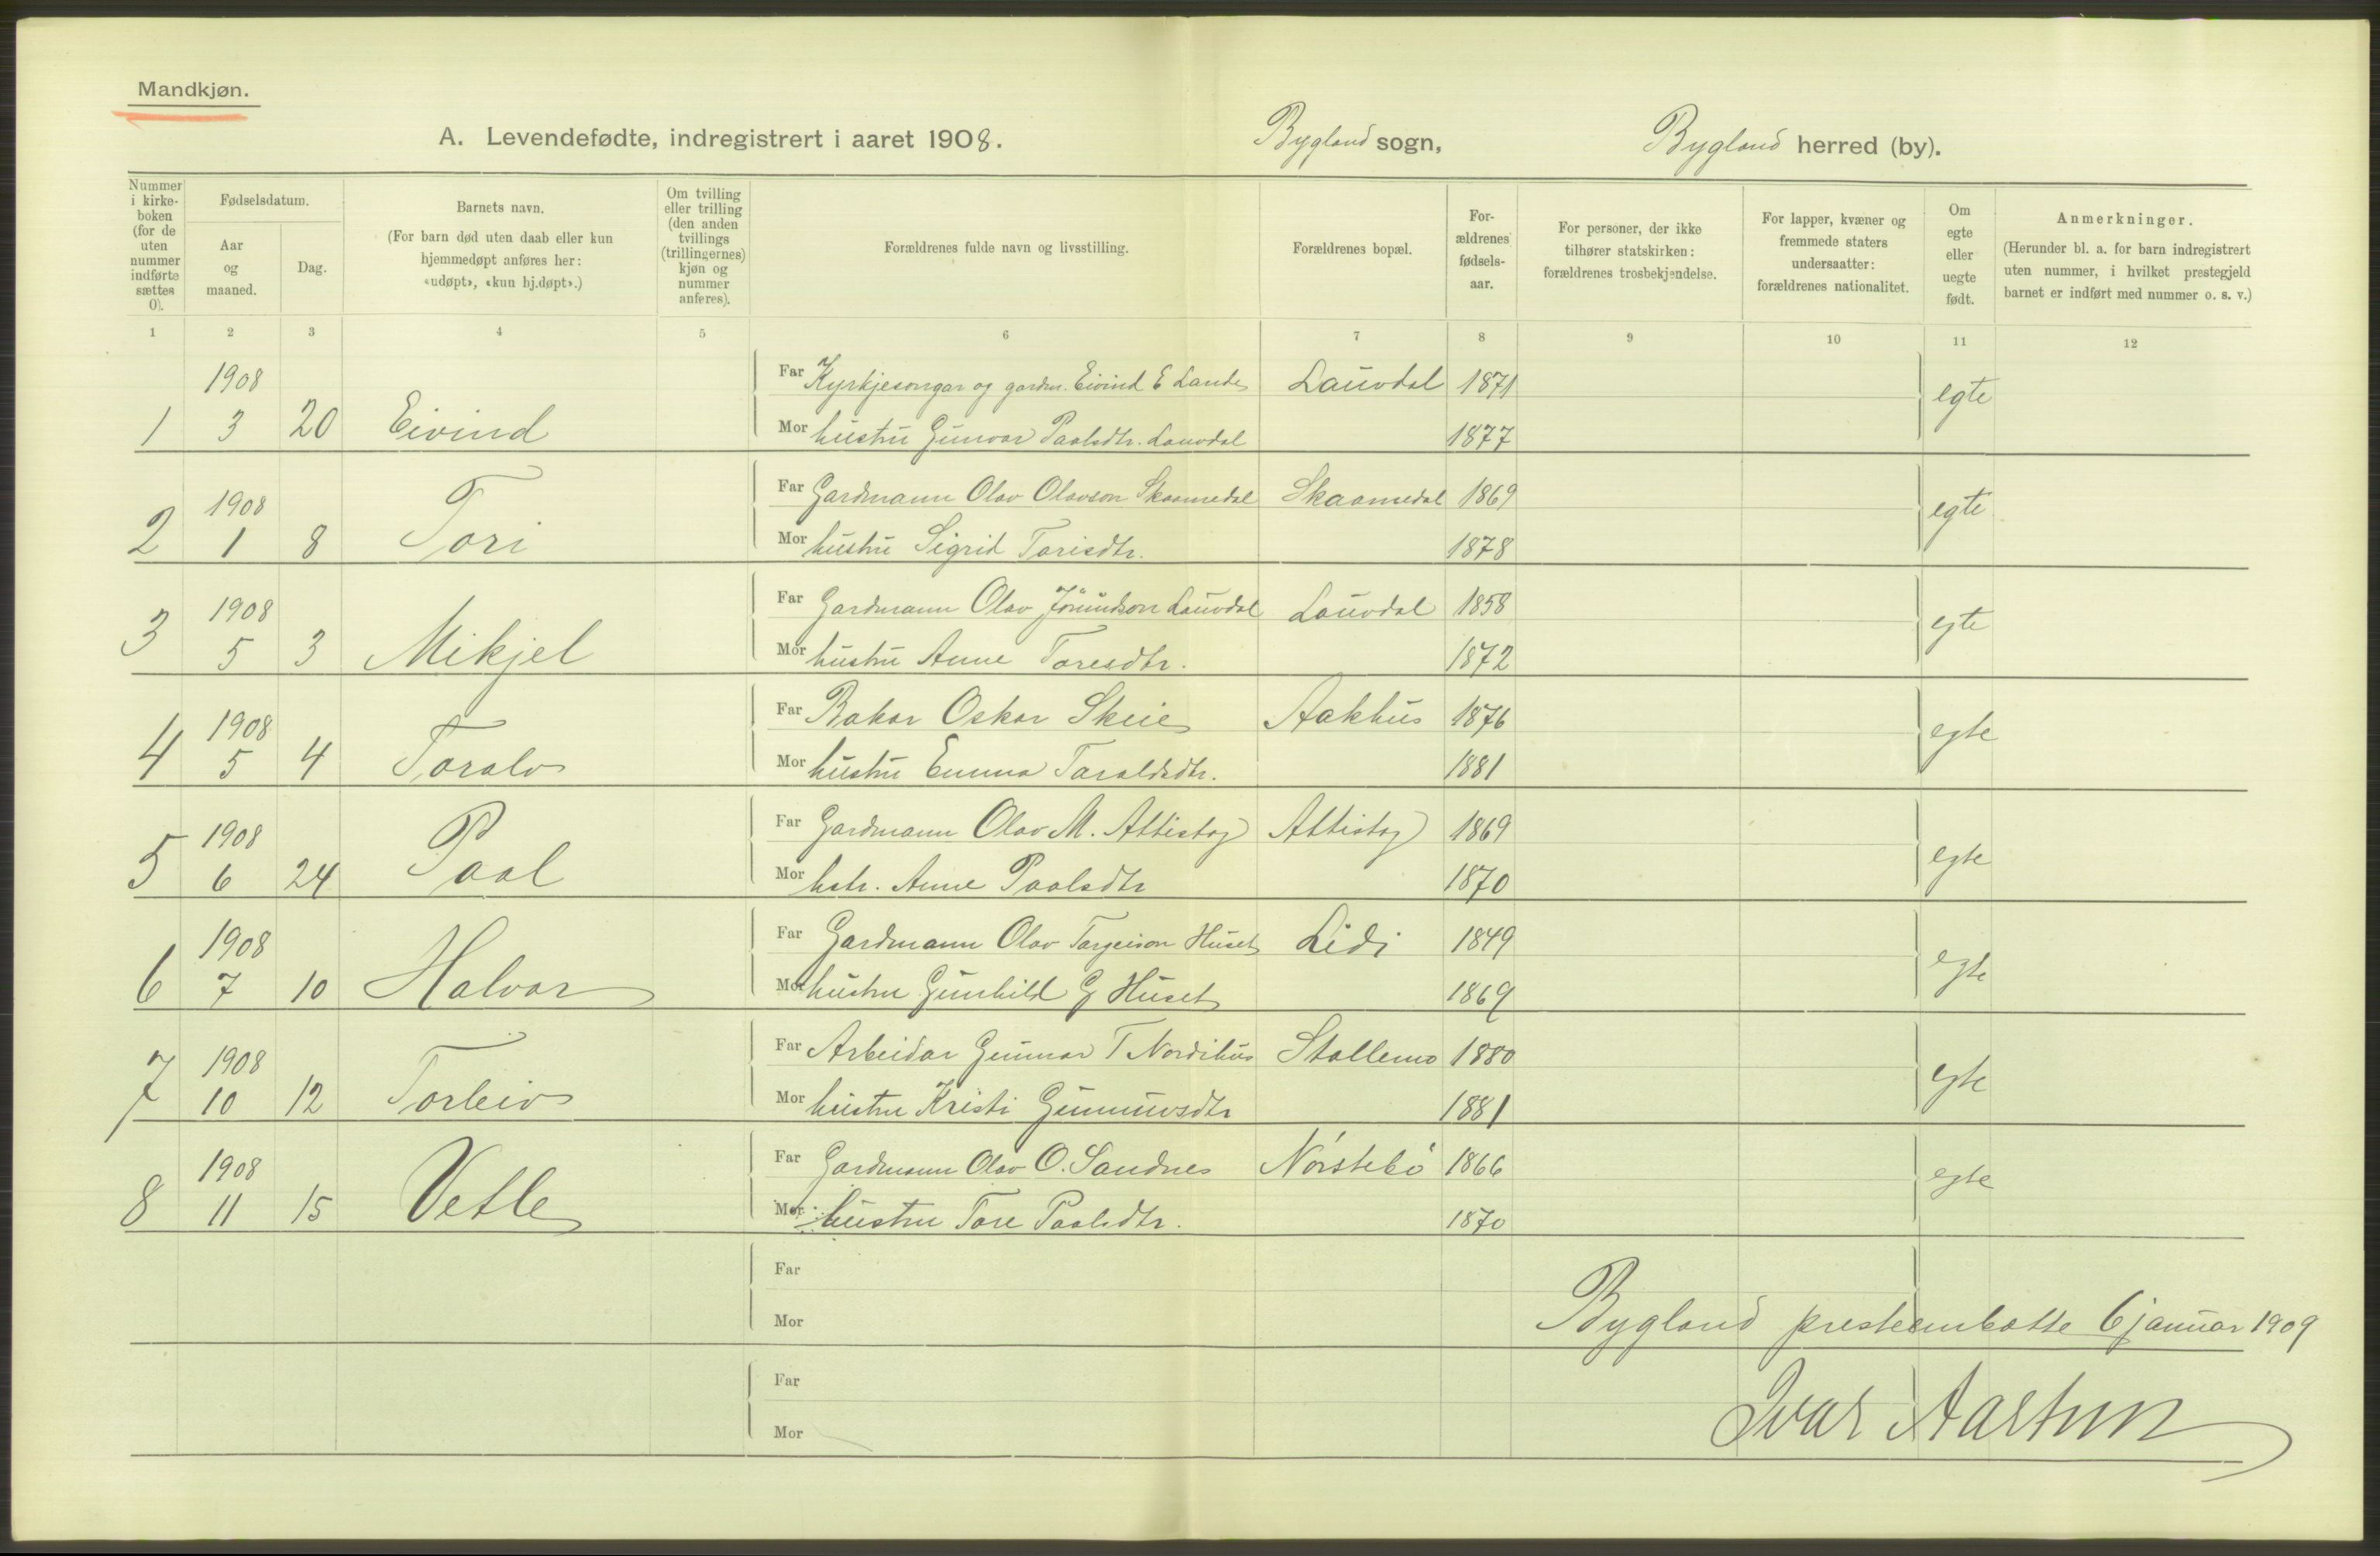 Mandkjøn.
A. Levendefødte, indregistrert i aaret 1908. Bygland sogn, Bygland herred (by).
Nummer i kirke-boken (for de uten nummer indførte sættes 0).
Fødselsdatum.
Aar og maaned.
Dag.
Barnets navn.
(For barn død uten daab eller kun hjemmedøpt anføres her: «udøpt», «kun hj.døpt».)
Om tvilling eller trilling (den anden tvillings (trillingernes) kjøn og nummer anføres).
Forældrenes fulde navn og livsstilling.
Forældrenes bopæl.
For-ældrenes fødsels-aar.
For personer, der ikke tilhører statskirken: forældrenes trosbekjendelse.
For lapper, kvæner og fremmede staters undersaatter: forældrenes nationalitet.
Om egte eller uegte født.
Anmerkninger.
(Herunder bl. a. for barn indregistrert uten nummer, i hvilket prestegjeld barnet er indført med nummer o. s. v.)
1 2 3 4 5 6 7 8 9 10 11 12
1908 Far Kyrkjesongar og gardm. Eivind E Lande Lauvdal 1871 egte
1 3 20 Eivind Mor hustru Gunvor Paalsdtr. Lauvdal 1877
1908 Far Gardmann Olav Olavson Skaamedal Skaamedal 1869 egte
2 1 8 Tori Mor hustru Sigrid Torisdtr. 1878
1908 Far Gardmann Olav Jörundson Lauvdal Lauvdal 1858 egte
3 5 3 Mikjel Mor hustru Anne Toresdtr. 1872
1908 Far Bakar Oskar Skeie Aakhus 1876 egte
4 5 4 Toralv Mor hustru Emma Taraldsdtr. 1881
1908 Far Gardmann Olav M. Attistog Attistog 1869 egte
5 6 24 Paal Mor hstr. Anne Paalsdtr 1870
1908 Far Gardmann Olav Torgeirson Huset Lidi 1849 egte
6 7 10 Halvor Mor hustru Gunhild G Huset 1869
1908 Far Arbeidar Gunnar T Nordihus Stallemo 1880 egte
7 10 12 Torleiv Mor hustru Kristi Gunnuvsdtr 1881
1908 Far Gardmann Olav O. Sandnes Nörstebö 1866 egte
8 11 15 Vetle Mor hustru Tore Paalsdtr. 1870
Far
Mor
Bygland presteembætte 6 januar 1909
Far
Ivar Aartun
Mor